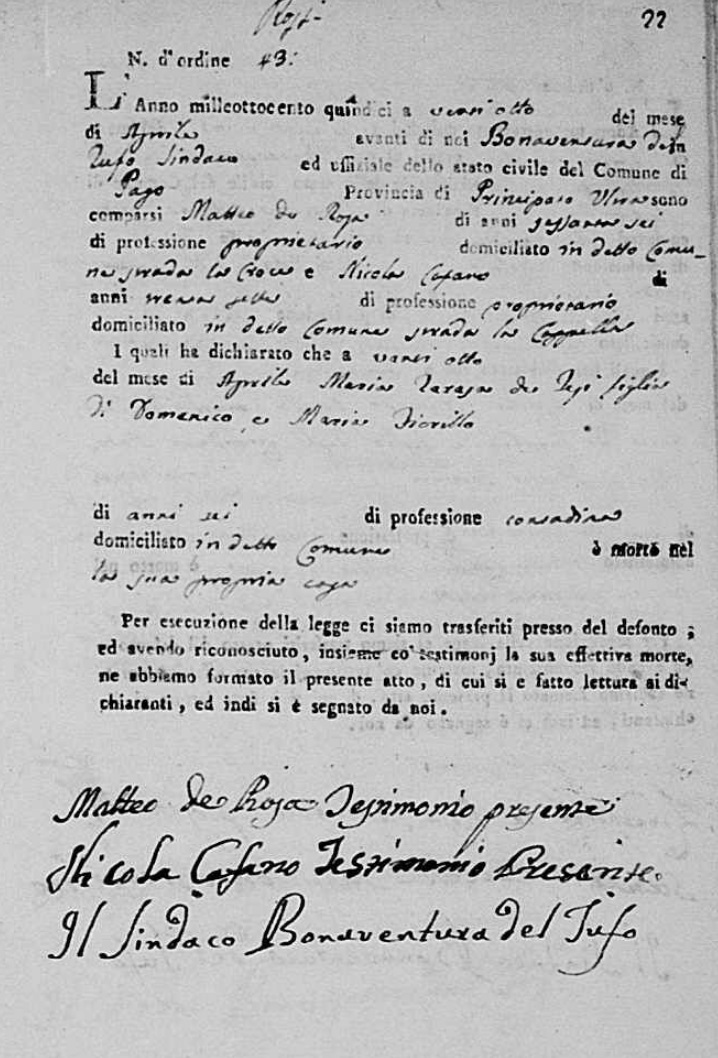 22
N. d'ordine 43.
L'Anno milleottocento quindici a venti otto del mese
di Aprile avanti di noi Bonaventura del
Tufo Sindaco ed uffiziale dello stato civile del Comune di
Pago Provincia di Principato Ultra sono
comparsi Matteo de Rosa di anni sessanta sei
di professione proprietario domiciliato in detto Comu-
ne strada la Croce e Nicola Cafano di
anni trenta sette di professione proprietario
domiciliato in detto Comune strada la Cappella
I quali ha dichiarato che a venti otto
del mese di Aprile Maria Teresa de figlia
di Domenico e Maria Fiorillo
di anni sei di professione contadina
domiciliato in detto Comune è morto nel
la sua propria casa
Per esecuzione della legge ci siamo trasferiti presso del defonto ;
ed avendo riconosciuto, insieme co' testimonj la sua effettiva morte,
ne abbiamo formato il presente atto, di cui si e fatto lettura ai di-
chiaranti, ed indi si è segnato da noi.
Matteo de Rosa Testimonio presente
Nicola Cafano Testimonio Presente.
Il Sindaco Bonaventura del Tufo